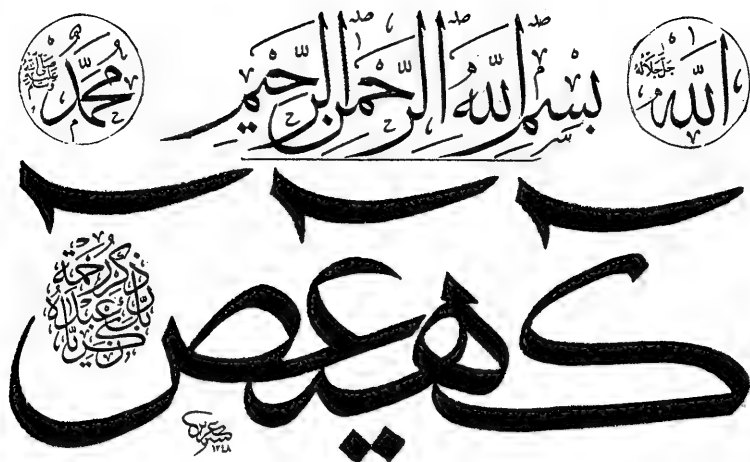 الله جل جلاله
بسم الله الرحمن الرحيم
محمد صلى الله عليه وسلم
كهيعص
ذكر رحمة
ربك عبده
زكريا